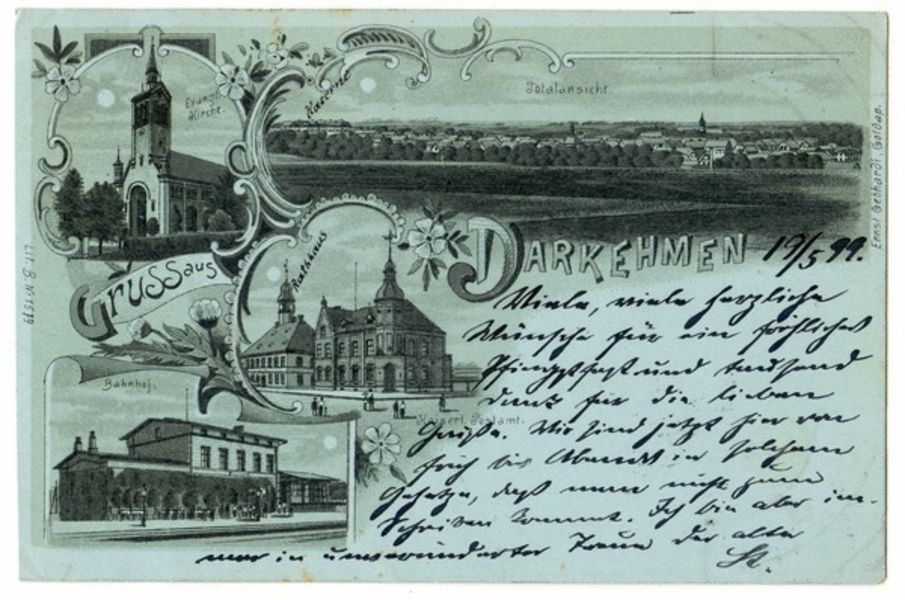 Evangl. Kirche.
Kaserne
Totalansicht.
Ernst Gebhardt, Goldap.
Lit. B. No 1579
Gruss aus
DARKEHMEN
Rathhaus
Kaiserl. Postamt.
Bahnhof.
19/5 99.
Viele, viele herzliche
Wünsche für ein fröhliches
Pfingstfest und tausend
Dank für die lieben
Grüße. Wir sind jetzt hier von
früh bis Abends in solchem
Gehetze, daß man nicht zum
Schreiben kommt. Ich bin aber im-
mer in unveränderter Treue der alte
St.